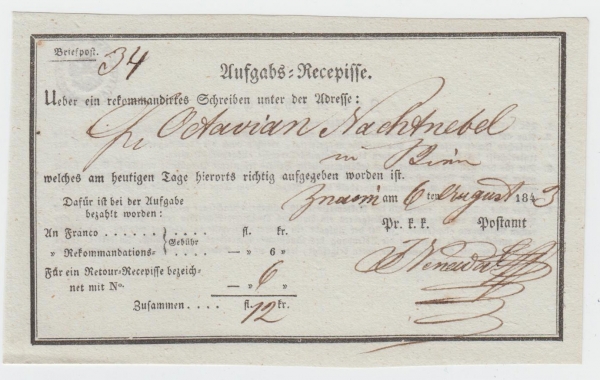 Briefpost. 34
Aufgabs-Recepisse.
Ueber ein rekommandirtes Schreiben unter der Adresse:
Octavian Nachtnebel
in Brün
welches am heutigen Tage hierorts richtig aufgegeben worden ist.
Dafür ist bei der Aufgabe
bezahlt worden:
Znaim am 6 ten August 1843
Pr. k. k. Postamt
An Franco . . . . . . } Gebühr . . . . fl. kr.
" Rekommandations- } . . . . — " 6 "
Für ein Retour-Recepisse bezeich-
net mit No. — " 6 "
Zusammen . . . . fl. 12 kr.